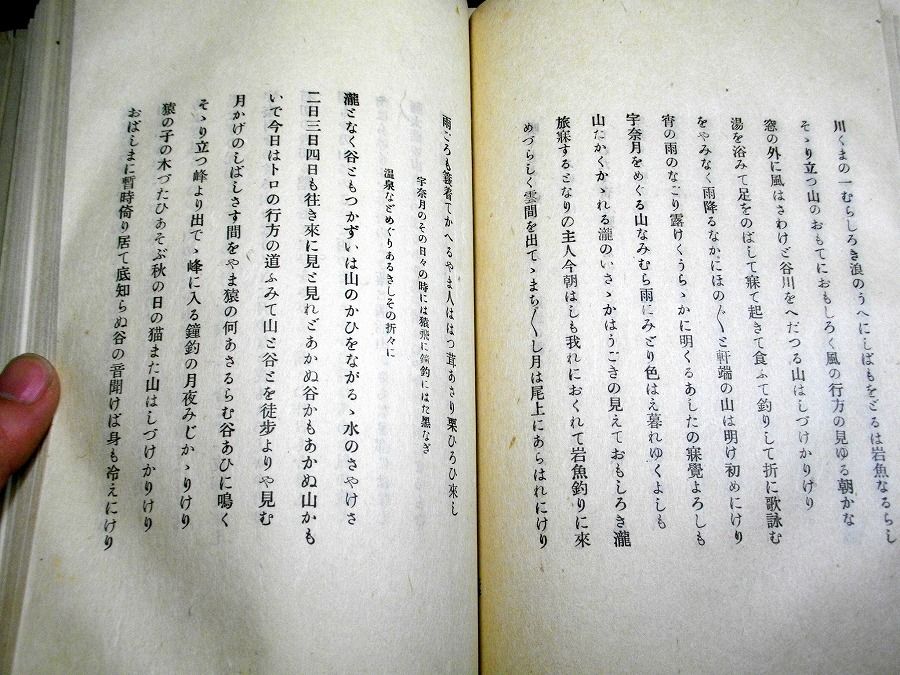 川くまの一むらしろき浪のうへにしばしもをどるは岩魚なるらし
そゝり立つ山のおもてにおもしろく風の行方の見ゆる朝かな
窓の外に風はさわけど谷川をへだつる山はしづけかりけり
湯を浴みて足をのばして寐て起きて食ふて釣りして折に歌詠む
をやみなく雨降るなかにほの〴〵と軒端の山は明け初めにけり
宵の雨のなごり露けくうらゝかに明くるあしたの寐覺よろしも
宇奈月をめぐる山なみむら雨にみどり色はえ暮れゆくよしも
山たかくかゝれる瀧のいさゝかはうごきの見えておもしろき瀧
旅寐するとなりの主人今朝はしも我れにおくれて岩魚釣りに來
めづらしく雲間を出てゝまち〳〵し月は尾上にあらはれにけり
雨ごろも簑着てかへるやま人ははつ茸あさり栗ひろひ來し
宇奈月のその日々の時には猿飛に鐘釣にはた黑なぎ
温泉などめぐりあるきしその折々に
瀧となく谷ともつかずいは山のかひをながるゝ水のさやけさ
二日三日四日も往き來に見と見れどあかぬ谷かもあかぬ山かも
いで今日はトロの行方の道ふみて山と谷とを徒步よりや見む
月かげのしばしさす間をやま猿の何あさるらむ谷あひに鳴く
そゝり立つ峰より出でゝ峰に入る鐘釣の月夜みじかゝりけり
猿の子の木づたひあそぶ秋の日の猫また山はしづけかりけり
おばしまに暫時倚り居て底知らぬ谷の音聞けば身も冷えにけり